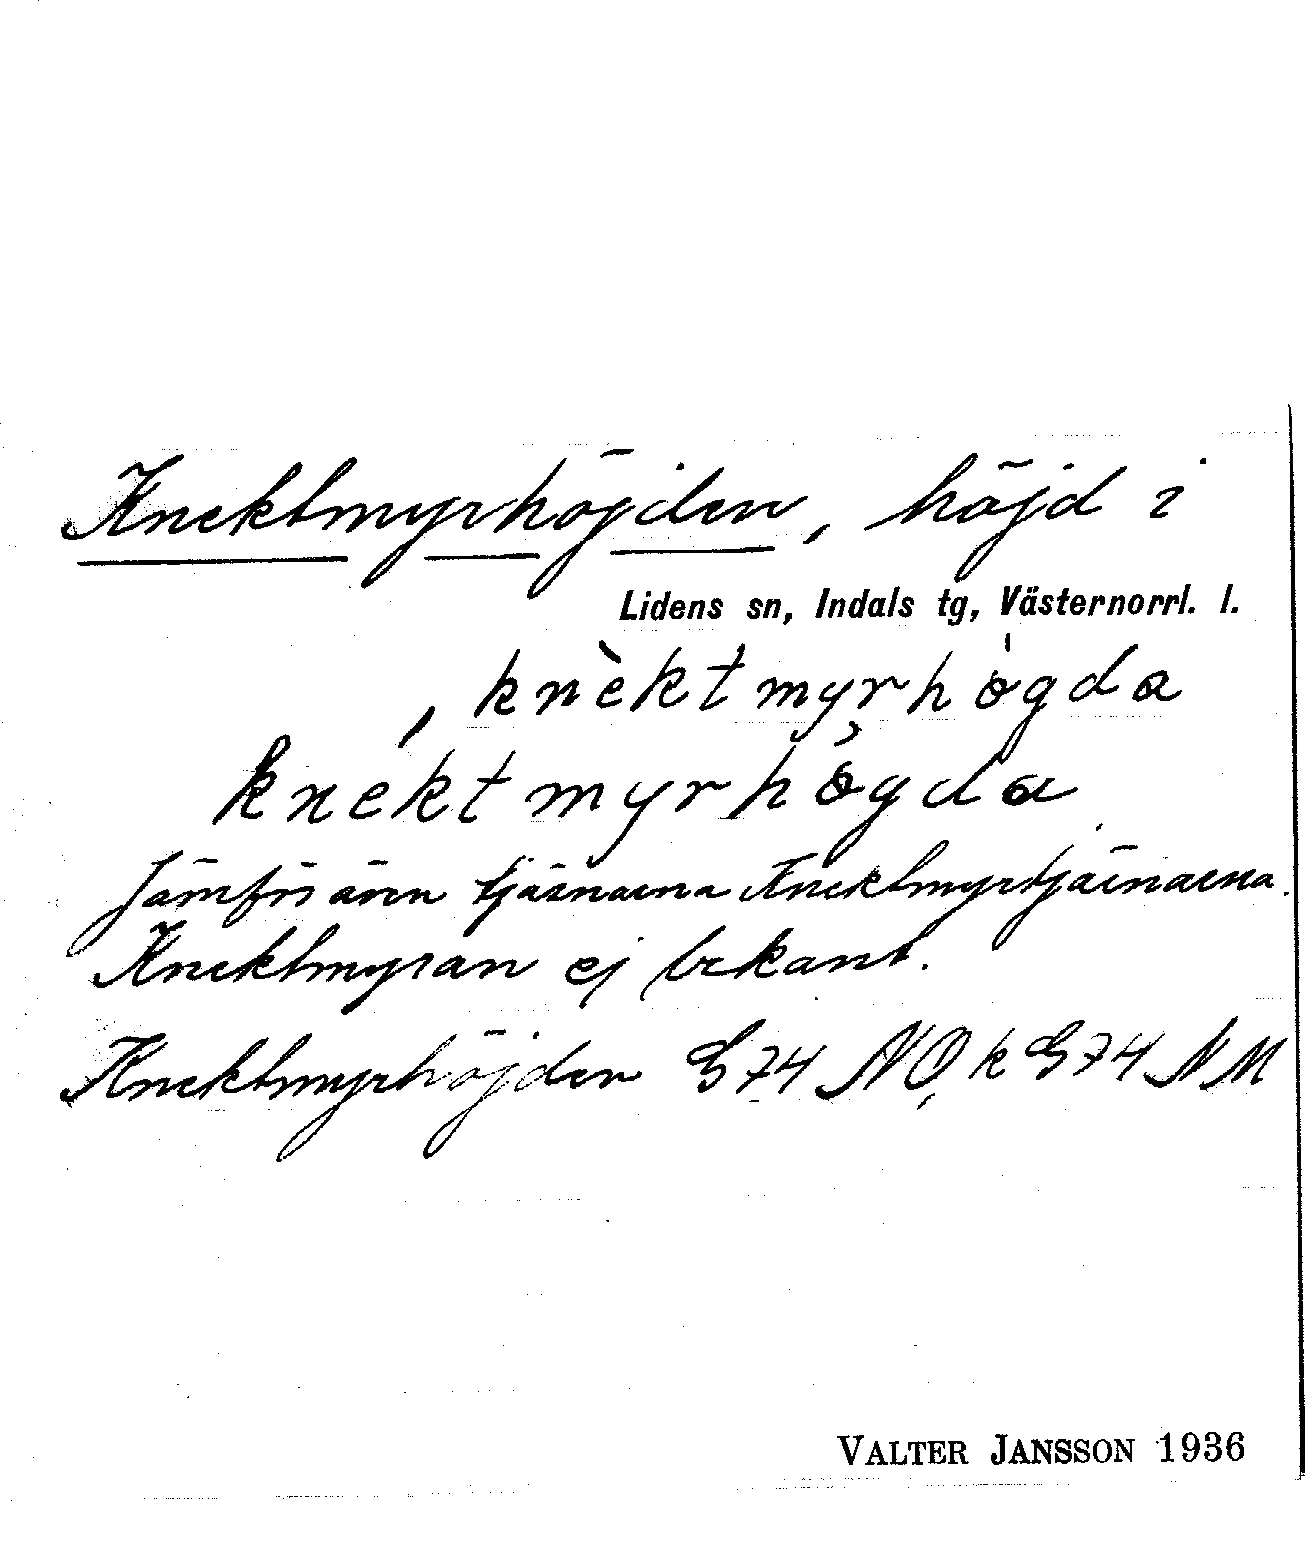 Knektmyrhöjden, höjd i
Lidens sn, Indals tg, Västernorrl. l.
, knèktmyrhògda
knektmyrhògda
Jämför även tjärnarna Knektmyrtjärnarna.
Knektmyran ej bekant.
Knektmyrhöjden G74 NO, k G74 NM
VALTER JANSSON 1936